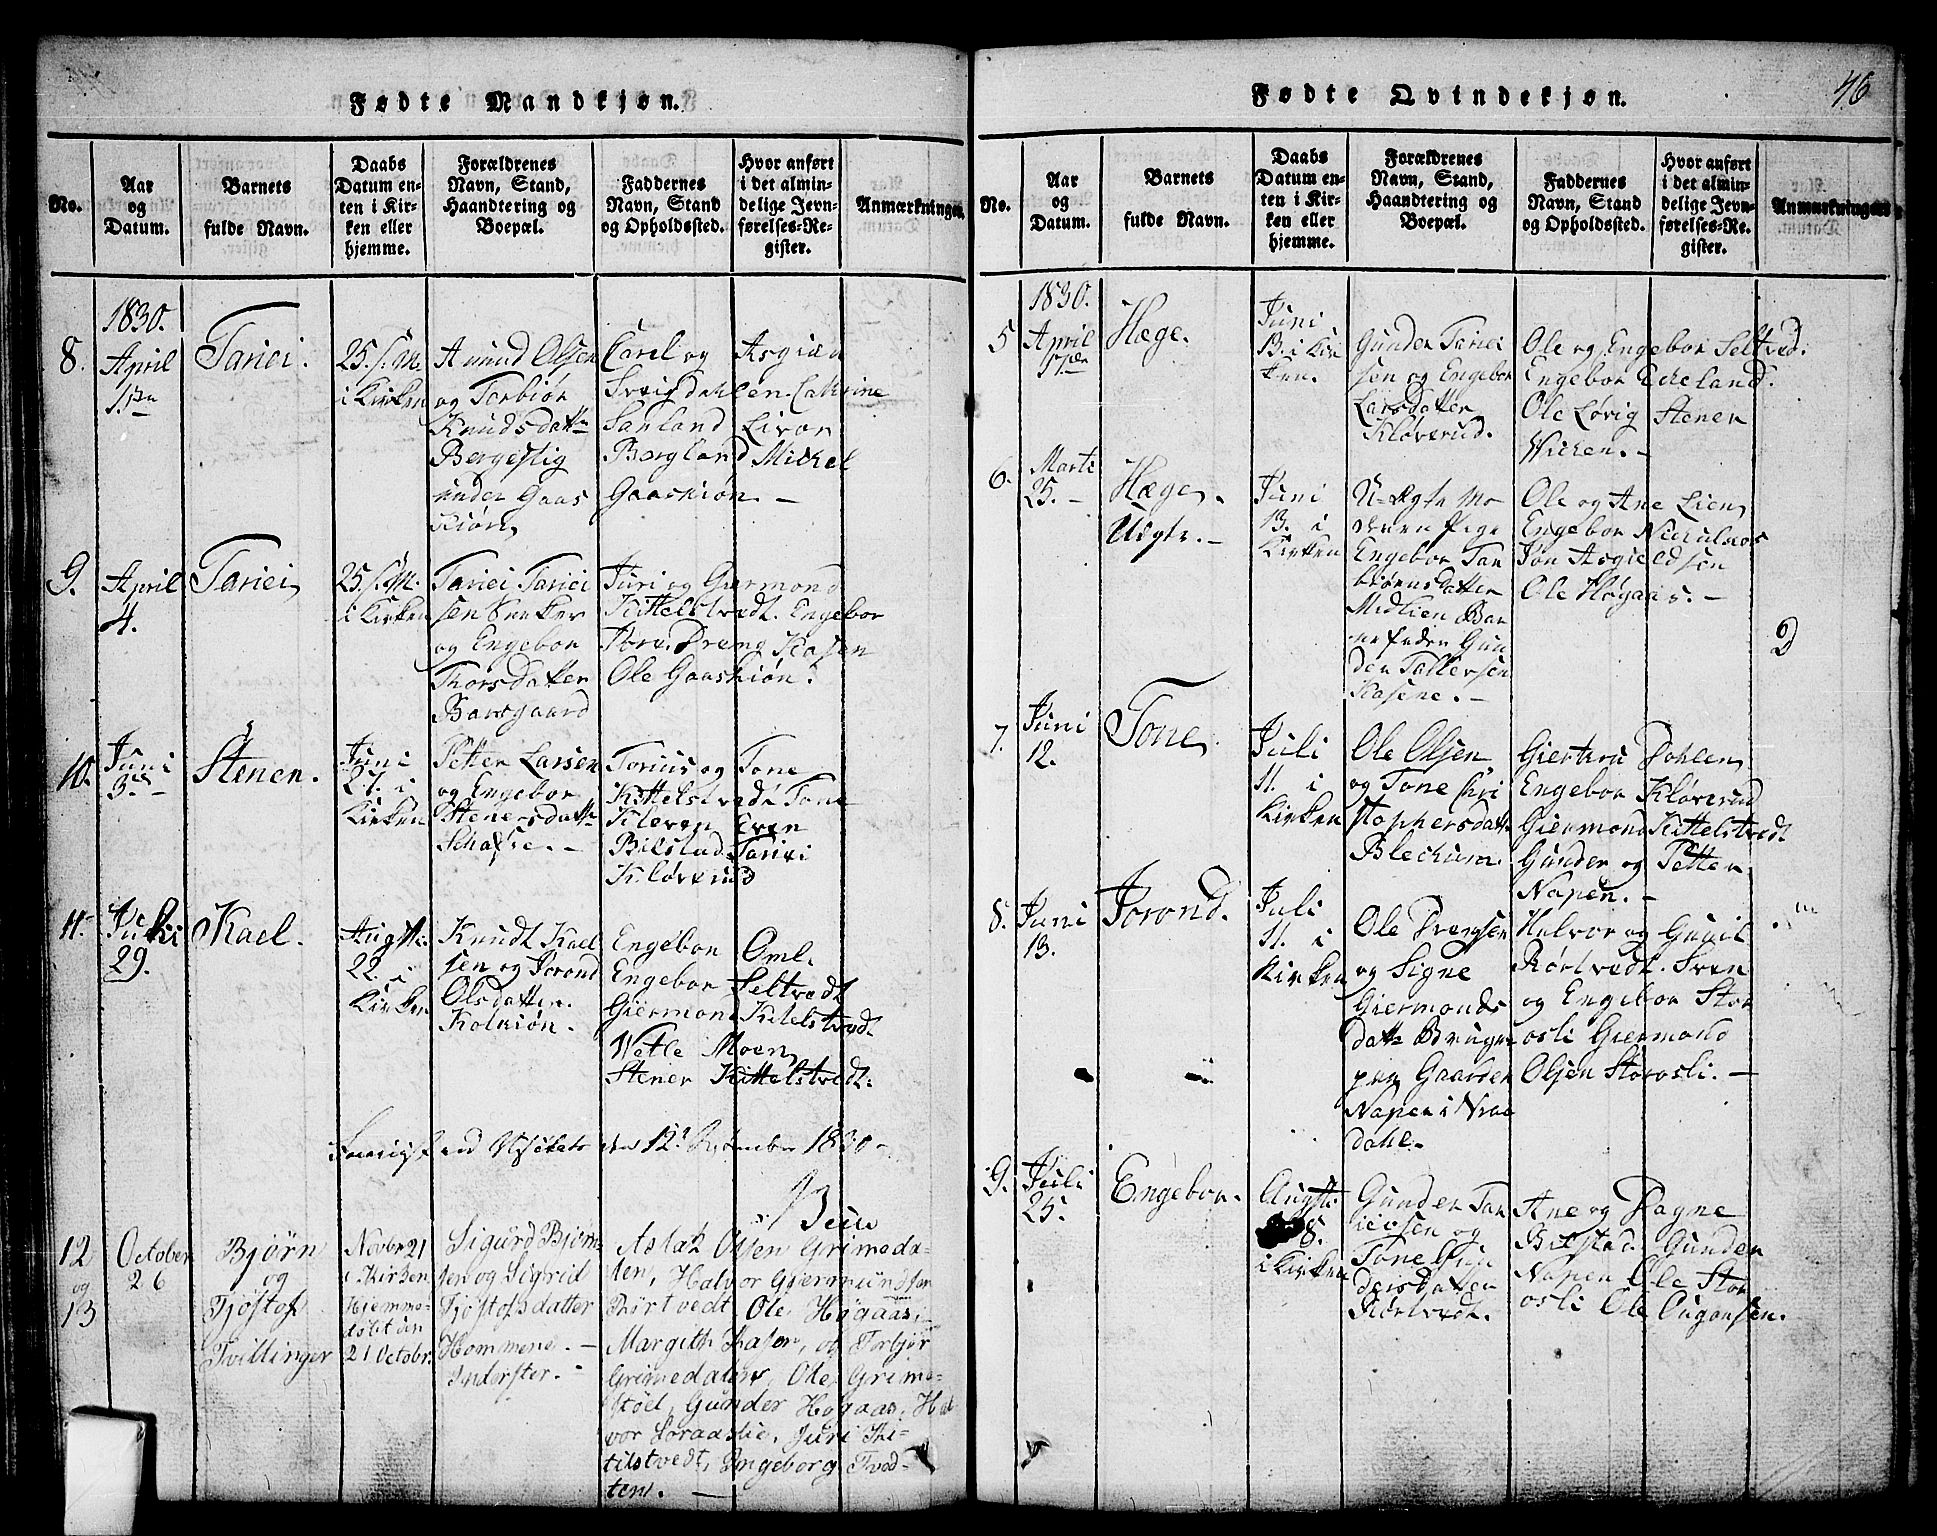 Fødte Mandkjøn.
No.
Aar
og
Datum.
Barnets
fulde Navn.
Daabs
Datum en-
ten i Kir-
ken eller
hjemme.
Forældrenes
Navn, Stand,
Haandtering og
Boepæl.
Faddernes
Navn, Stand
og Opholdssted.
Hvor anført
i det almin-
delige Jevn-
førelses-Re-
gister.
Anmærkninger.
8.
1830.
April
Tariei.
25. 
i Kirken
Amund Olsen
og Torbiør
Knudsdattr
Bergestig
under Gaas
kiøn
Carel og Asgier
Sveigdahlen. Cathrine
Sanland Livor
Borgland Mickel
Gaaskiøn. —
9.
April
4.
Tariei
25.
i Kirken
Tariei Tariei
sen
og Engebor
Thorsdatter
Bansgaard
Juri og Giermond
Kittelstvedt. Engebor
Dreng Kasen
Ole Gaaskiøn.
10.
Juni
3.
Stener.
Juni
27. i
Kirken
Petter Larsen
og Engebor
Stenersdattr
Torius og Tone
Kittelstvedt Tone
Kleven Even
Bilstad Tariei
Kløverud
11.
29.
Kael.
Augsti.
22. i
Kirken
Knudt Kael
sen og Jorond
Olsdatter.
Kolkiøn.
Engebor Oml.
Engebor Seltvedt
Giermon Kitelstvedt
Vetle Moen
Stener Kittelstvedt.
den 12 September 1830
12
og
13
October
26
Bjørn
og
Tjøstof
Tvillinger
Novbr 21
i Kirken
Hjemme-
døbt den
21 Octobr.
Sigurd Bjørn-
sen og Sigrid
Tjøstofsdatter
Hommene. —
Inderster. -
Aslak Olsen Grimeda-
len, Halvor Gjermundsen
Rørtvedt, Ole Høgaas,
Margith Kasen, og Torbjør
Grimedalen, Ole Grime-
støel, Gunder Høgaas, Hal
vor Soraaslie, Juri Ki-
tilstvedt, Ingeborg Tved-
ten. —
Fødte Qvindekjøn.
46
No.
Aar
og
Datum.
Barnets
fulde Navn.
Daabs
Datum en-
ten i Kir-
ken eller
hjemme.
Forældrenes
Navn, Stand,
Haandtering og
Boepæl.
Faddernes
Navn, Stand
og Opholdssted.
Hvor anført
i det almin-
delige Jevn-
førelses-Re-
gister.
Anmærkninger
5
1830.
April
17de
Hæge.
Juni
13. i Kir
ken.
Gunder Tariei
sen og Engebor
Larsdatter
Kløverud.
Ole og Engebor Seltved.
Engebor Edeland.
Ole Løvig Stener
Vicken. —
6.
Marti
25. —
Hæge.
Uægte. —
Juni
13. i
Kirken
U-Ægte Mo
deren Pige
Engebor Tar
biørnsdatter
Midlien Bar
nefader Gun
der Tallevsen
Kasene. —
Ole og Ane Lien
Engebor Niculaos
Jon Asgieldsen
Ole Høgaas. —
7.
Juni
12.
Tone
Juli
11. i
Kirken
Ole Olsen
og Tone Chri
stophersdattr
Bleckum
Giertru Dahlen
Engebor Kløverud
Giermond Kittelstvedt
Gunder og Petter
Napen. —
8.
Juni
13.
Jorond.
Juli
11. i
Kirken
Ole Drengsen
og Signe
Giermonds
datt Bruger
paa Gaarden
Napen i Vraa
dahl. -
Halvor og Gunil
Rørtvedt. Sven
og Engebor Stor
osli Giermond
Olsen Storosli. —
9.
Juli
25.
Engebor.
Augsti.
8.
i Kirken
Gunder Tar
ieisen og
Tone Gun
dersdatter
Rørtvedt.
Ane og Dagne
Bilstad. Gunder
Napen Ole Stor
osli Ole Ougonsen.